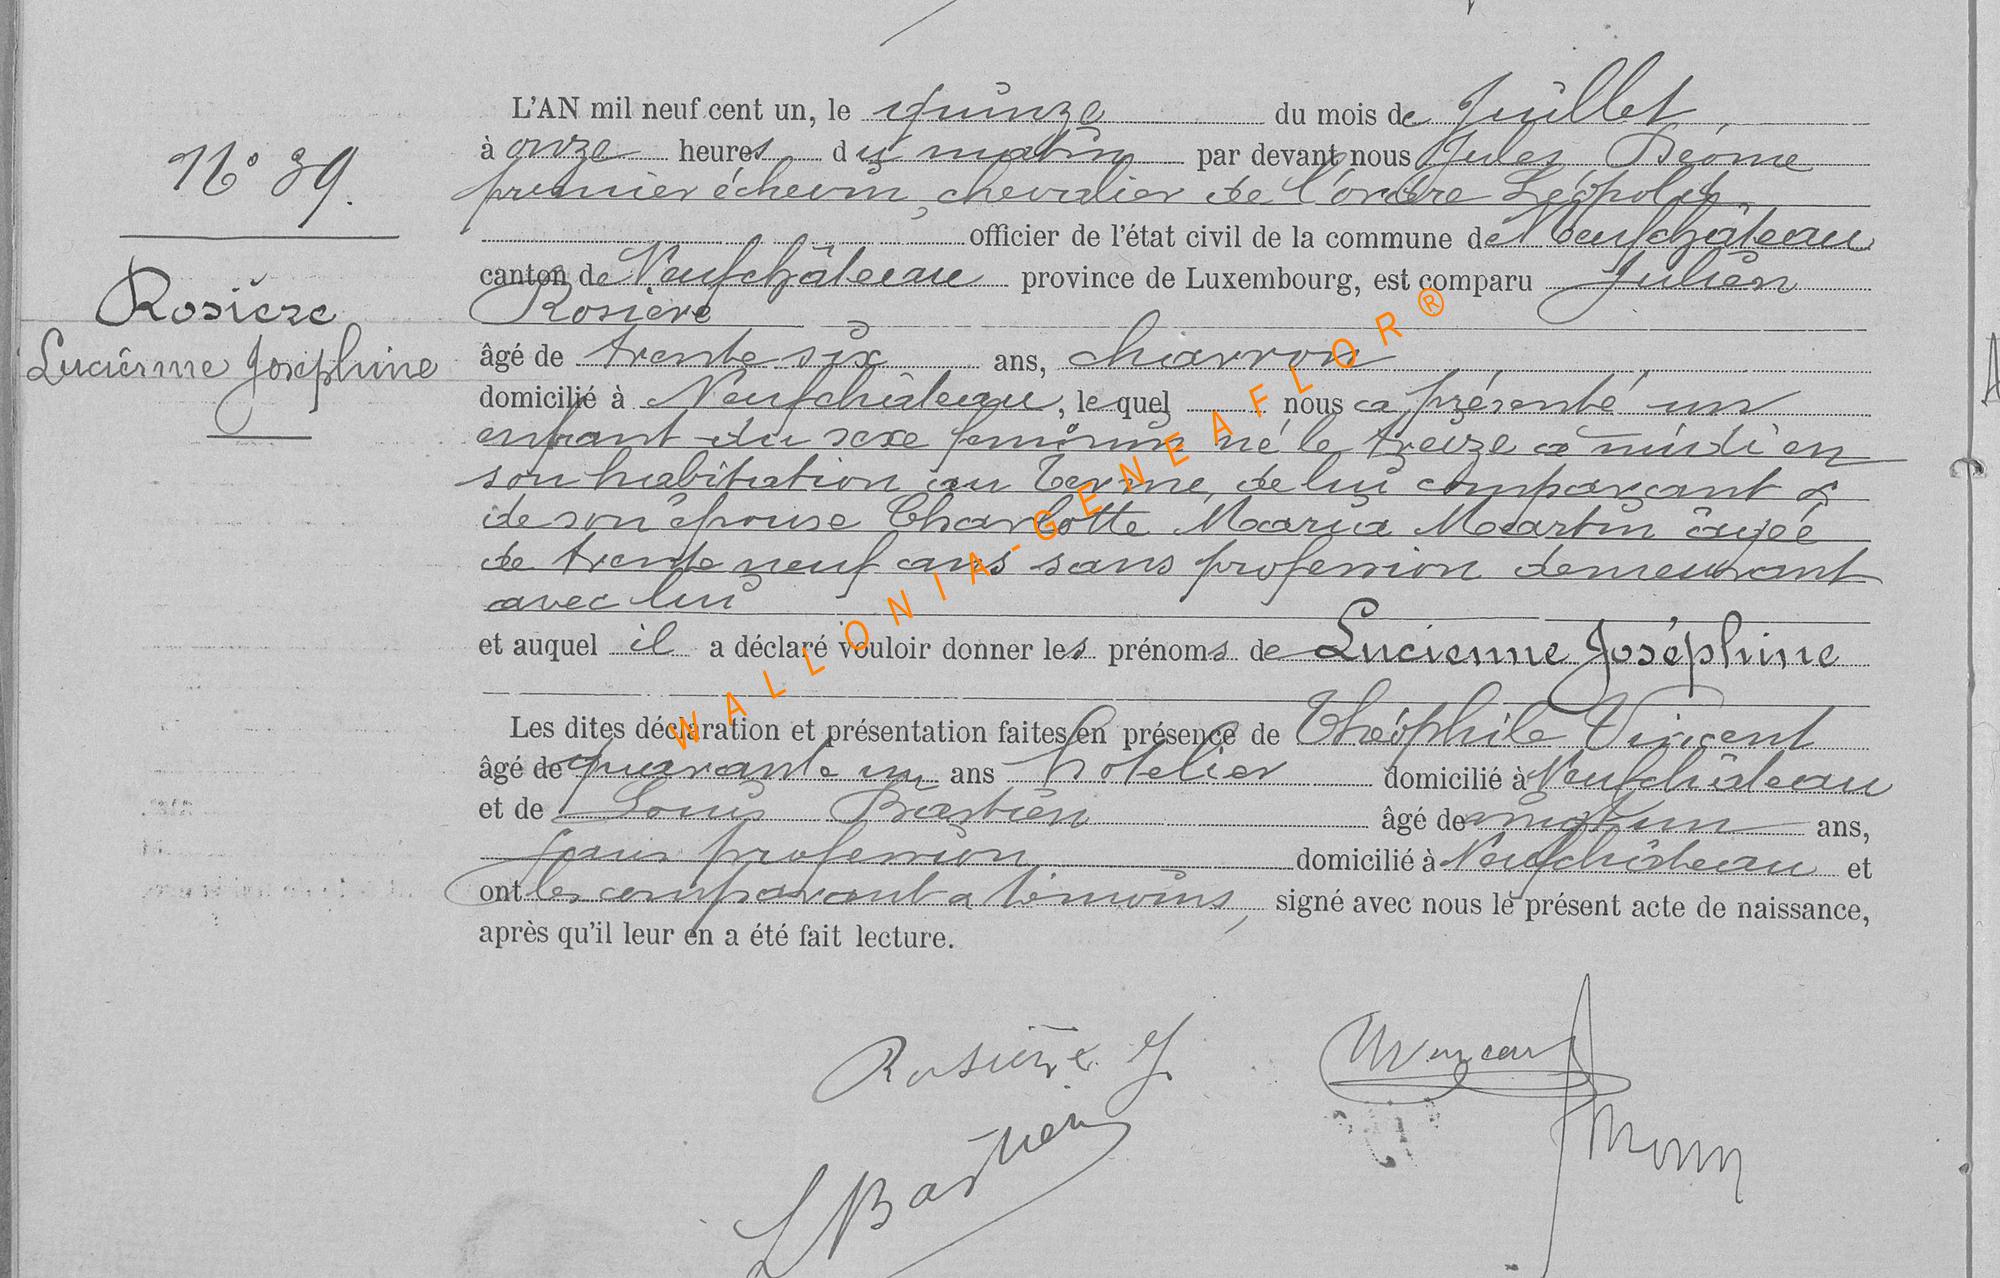 L'AN mil neuf cent un, le quinze du mois de Juillet
à onze heures du matin par devant nous Jules
premier échevin, chevalier de l'ordre Léopold,
officier de l'état civil de la commune de Neufchâteau
N° 39.
canton de Neufchâteau province de Luxembourg, est comparu Julien
Rosière
Rosière
âgé de trente six ans, charron
Lucienne Joséphine
domicilié à Neufchâteau, lequel nous a présenté un
enfant du sexe féminin né le treize à midi en
son habitation au Terme, de lui comparant &
de son épouse Charlotte Maria Martin âgée
de trente neuf ans sans profession demeurant
avec lui
et auquel il a déclaré vouloir donner les prénoms de Lucienne Joséphine
Les dites déclaration et présentation faites en présence de Théophile Vincent
âgé de quarante un ans hotelier domicilié à Neufchâteau
et de Louis Bastien âgé de vingt un ans,
sans profession domicilié à Neufchâteau et
ont les comparant & témoins, signé avec nous le présent acte de naissance,
après qu'il leur en a été fait lecture.
Rosière J
L Bastien
WALLONIA-GENEAFLOR®